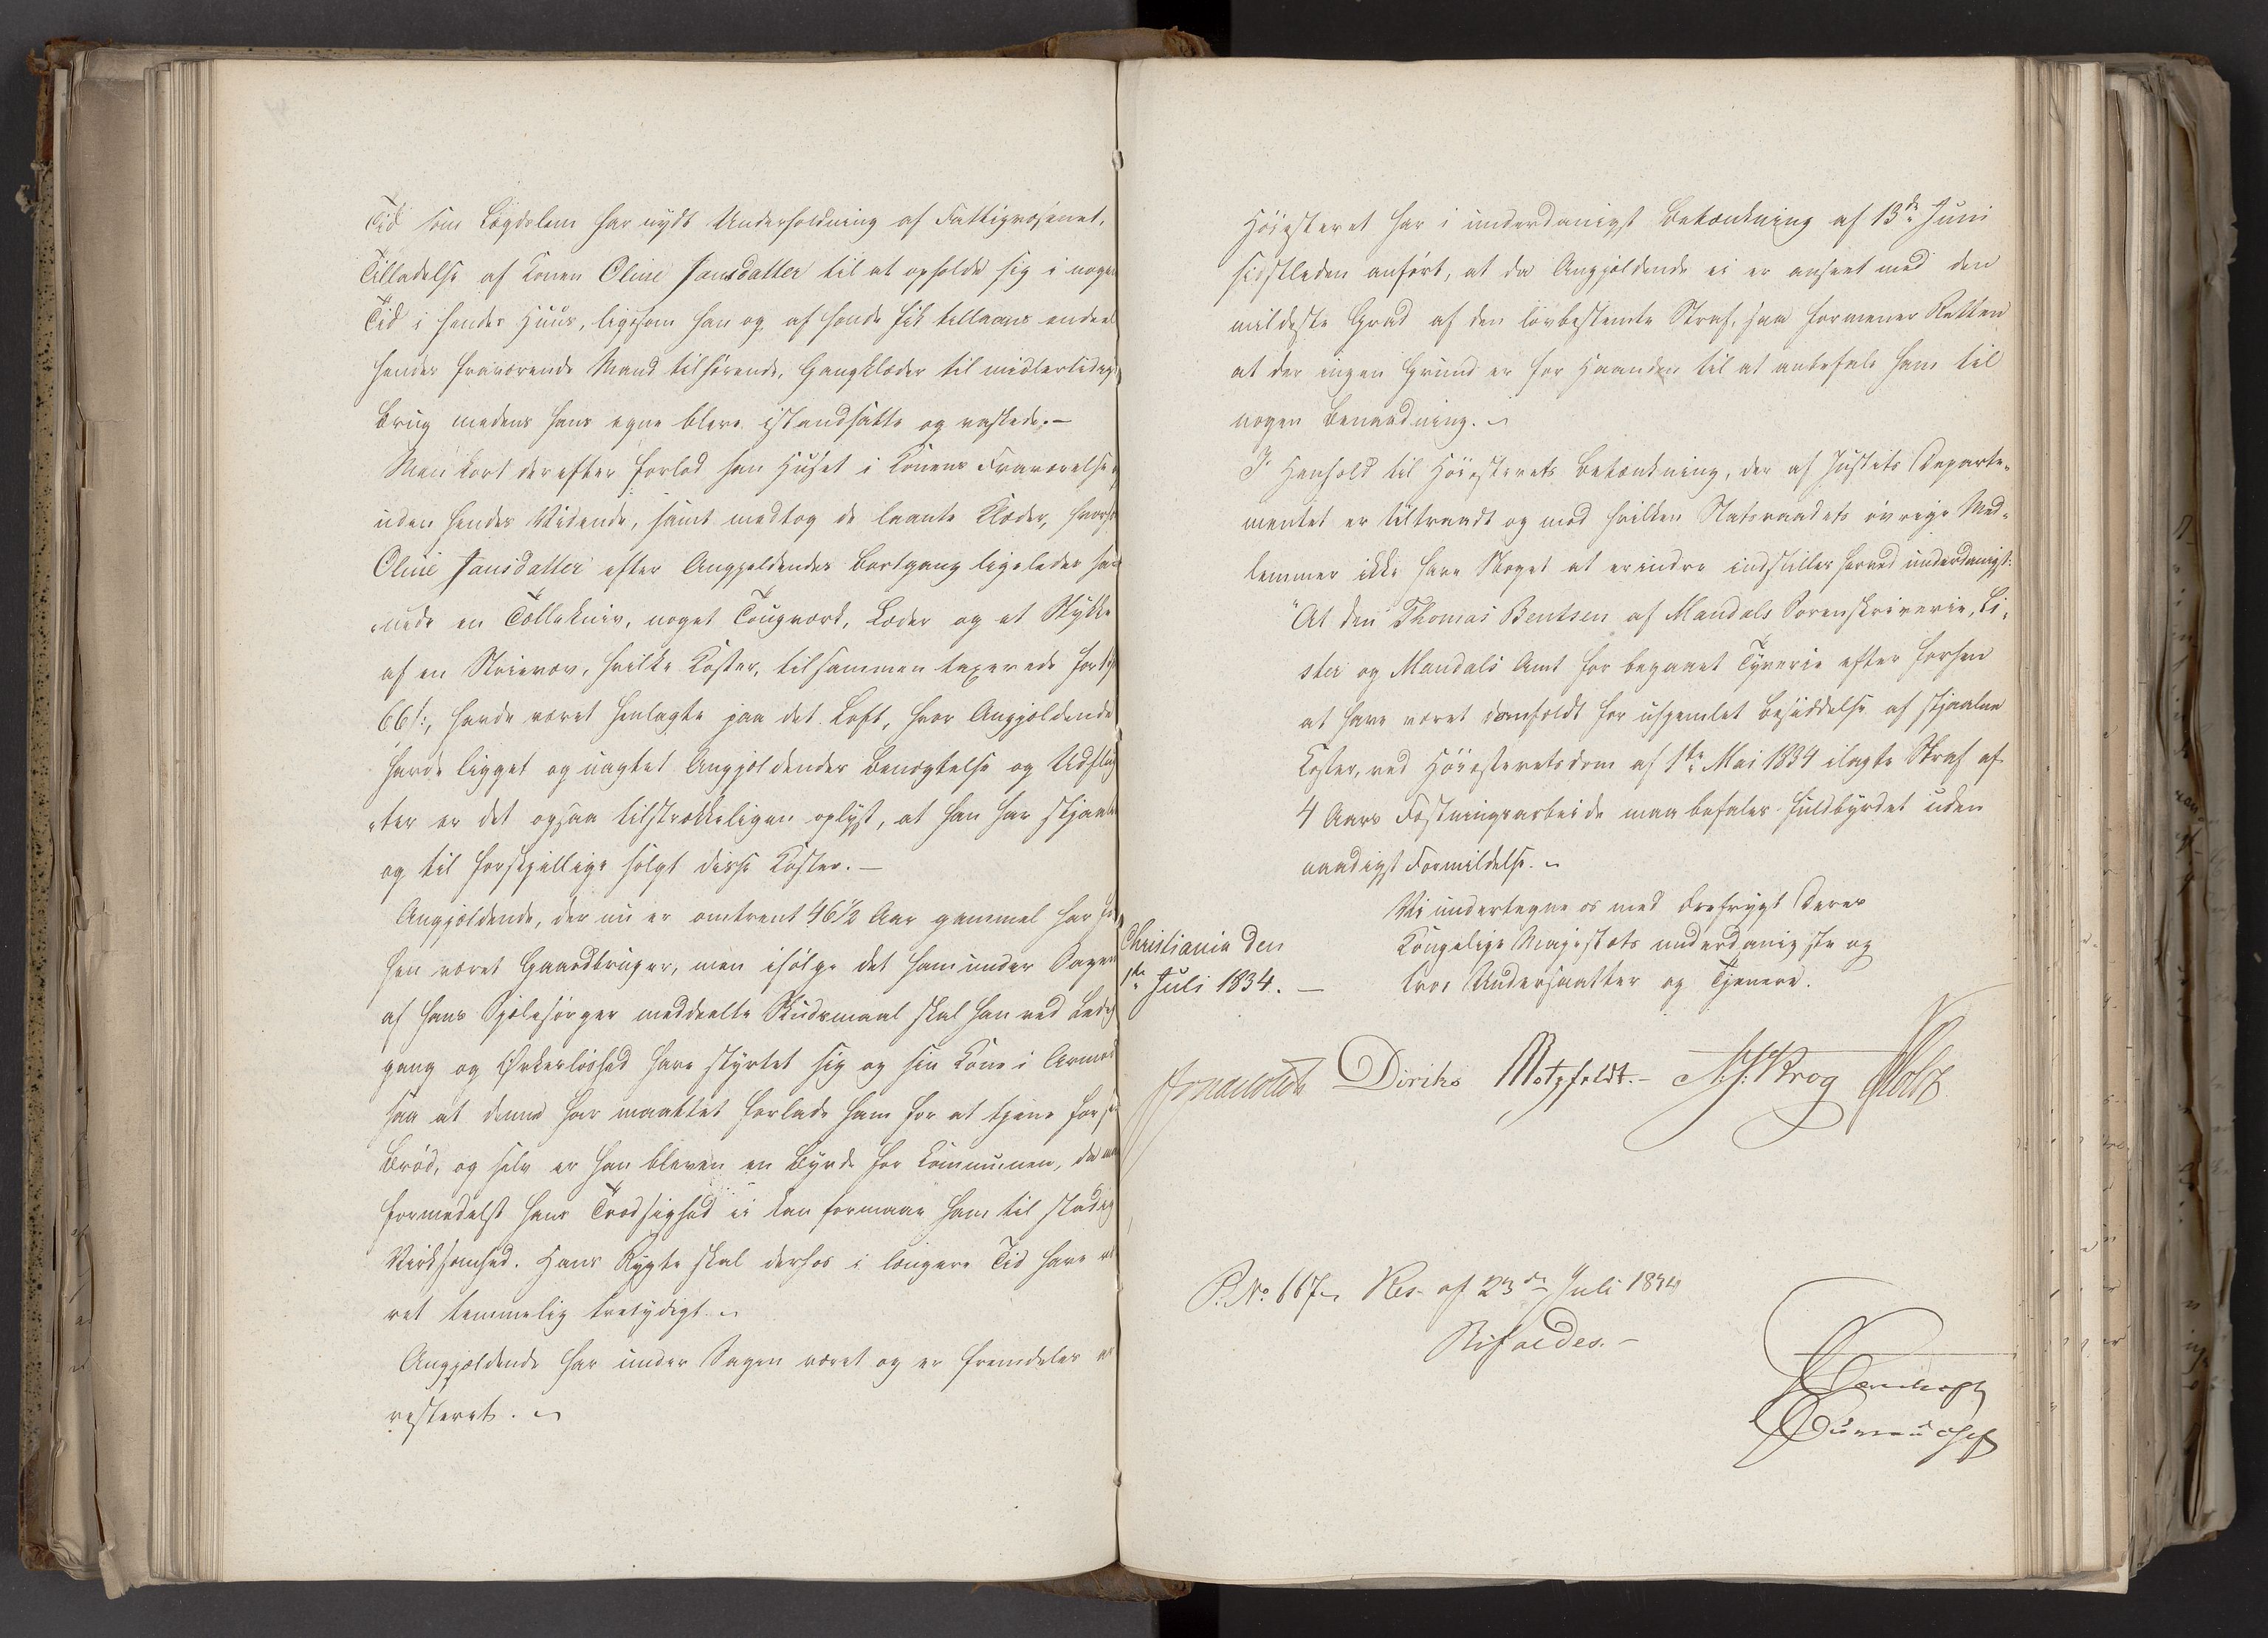 Tid som Lægdslem har nydt Underholdning af Fattigvæsenet,
Tilladelse af Konen Oline Jansdatter til at opholde sig i nogen
Tid i hendes Huus, ligesom han og af hende fik tillaans endeel
hendes fraværende Mand tilhørende, Gangklæder til midlertidig
Brug medens hans egne bleve istandsatte og vaskede. –
Men kort derefter forlod han Huset i Konens Fraværelse og
uden hendes Vidende, samt medtog de laante Klæder, hvorhos
Oline Jansdatter efter Angjældendes Bortgang ligeledes sav-
nede en Tollekniv, noget Tougværk, Læder og et Stykke
af en Skrievæv, hvilke Koster, tilsammen taxerede for
66 s:, havde været henlagte paa det Loft, hvor Angjældende
havde ligget og uagtet Angjældendes Benægtelse og Udflug-
ter er det ogsaa tilstrækkeligen oplyst, at han har stjaalet
og til forskjellige solgt disse Koster. –
Angjældende, der nu er omtrent 46½ Aar gammel har før
hen været Gaardbruger, men ifølge det ham under Sagen
af hans Sjælesørger meddeelte Skudsmaal skal han ved Ledig
gang og Ørkesløshed have styrtet sig og sin Kone i Armod
saa at denne har maattet forlade ham for at tjene for sit
Brød, og selv er han bleven en Byrde for Kommunen, da man
formedelst hans Trodsighed ei kan formaae ham til stadig
Virksomhed. Hans Rygte skal derhos i længere Tid have væ
ret temmelig tvetydigt.
Angjældende har under Sagen været og er fremdeles ar
resteret.
Høiesteret har i underdanigst Betænkning af 13de Juni
sidstleden anført, at da Angjældende ei er anseet med den
mildeste Grad af den lovbestemte Straf, saa formener Retten
at der ingen Grund er for Haanden til at anbefale ham til
nogen Benaadning.
I Henhold til Høiesterets Betænkning, der af Justits Departe-
mentet er tiltraadt og mod hvilken Statsraadets øvrige Med-
lemmer ikke have Noget at erindre indstilles herved underdanigst:
"At den Thomas Bentsen af Mandals Sorenskriverie, Li-
ster og Mandals Amt for begaaet Tyverie efter forhen
at have været domfældt for uhjemlet Besiddelse af stjaalne
Koster, ved Høiesteretsdom af 1ste Mai 1834 ilagte Straf af
4 Aars Fæstningsarbeide maa befales fuldbyrdet uden
naadigst Formildelse.
Vi undertegne os med Ærefrygt Deres
Kongelige Majestæts underdanigste og
troe Undersaatter og Tjenere.
Christiania den
1ste Juli 1834. –
Diriks Motzfeldt. – Krog Holst
P. No 667. Res. af 23de Juli 1834
Bifaldes. –